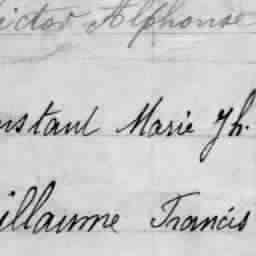 ictor Alphonse
nstant Marie Jh.
illaume Francis